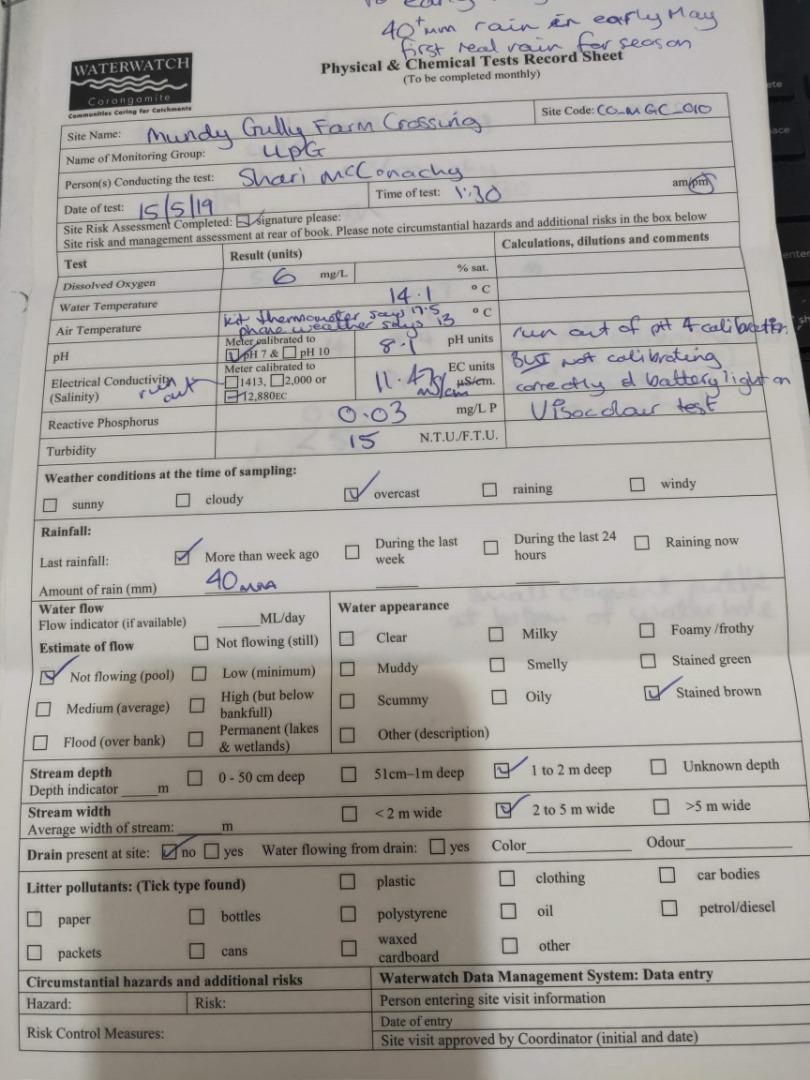 40+mm rain in early May
first real rain for season
WATERWATCH
Corangamite
Communities Caring for Catchments
Physical & Chemical Tests Record Sheet
(To be completed monthly)
Site Name: Mundy Gully Farm Crossing Site Code: CO_MGC_010
Name of Monitoring Group: UPG
Person(s) Conducting the test: Shari McConachy
Date of test: 15/5/19 Time of test: 1:30 am/pm
Site Risk Assessment Completed: signature please:
Site risk and management assessment at rear of book. Please note circumstantial hazards and additional risks in the box below
Test Result (units) Calculations, dilutions and comments
Dissolved Oxygen 6 mg/L % sat.
Water Temperature 14.1 °C
Air Temperature kit thermometer says 17.5 °C
phone weather says 13
pH Meter calibrated to 8.1 pH units run out of pH 4 calibration
pH 7 & pH 10
Electrical Conductivity (Salinity) run out Meter calibrated to 11.47 EC units BUT not calibrating
1413, 2,000 or mS/cm µS/cm. correctly & battery light on
12,880EC
Reactive Phosphorus 0.03 mg/L P Visocolour test
Turbidity 15 N.T.U./F.T.U.
Weather conditions at the time of sampling:
sunny cloudy overcast raining windy
Rainfall:
Last rainfall: More than week ago During the last week During the last 24 hours Raining now
Amount of rain (mm) 40mm
Water flow Water appearance
Flow indicator (if available) ML/day
Estimate of flow Not flowing (still) Clear Milky Foamy /frothy
Not flowing (pool) Low (minimum) Muddy Smelly Stained green
Medium (average) High (but below bankfull) Scummy Oily Stained brown
Flood (over bank) Permanent (lakes & wetlands) Other (description)
Stream depth 0 - 50 cm deep 51cm–1m deep 1 to 2 m deep Unknown depth
Depth indicator ______m
Stream width < 2 m wide 2 to 5 m wide >5 m wide
Average width of stream: ______m
Drain present at site: no yes Water flowing from drain: yes Color Odour
Litter pollutants: (Tick type found) plastic clothing car bodies
paper bottles polystyrene oil petrol/diesel
packets cans waxed cardboard other
Circumstantial hazards and additional risks Waterwatch Data Management System: Data entry
Hazard: Risk: Person entering site visit information
Risk Control Measures: Date of entry
Site visit approved by Coordinator (initial and date)